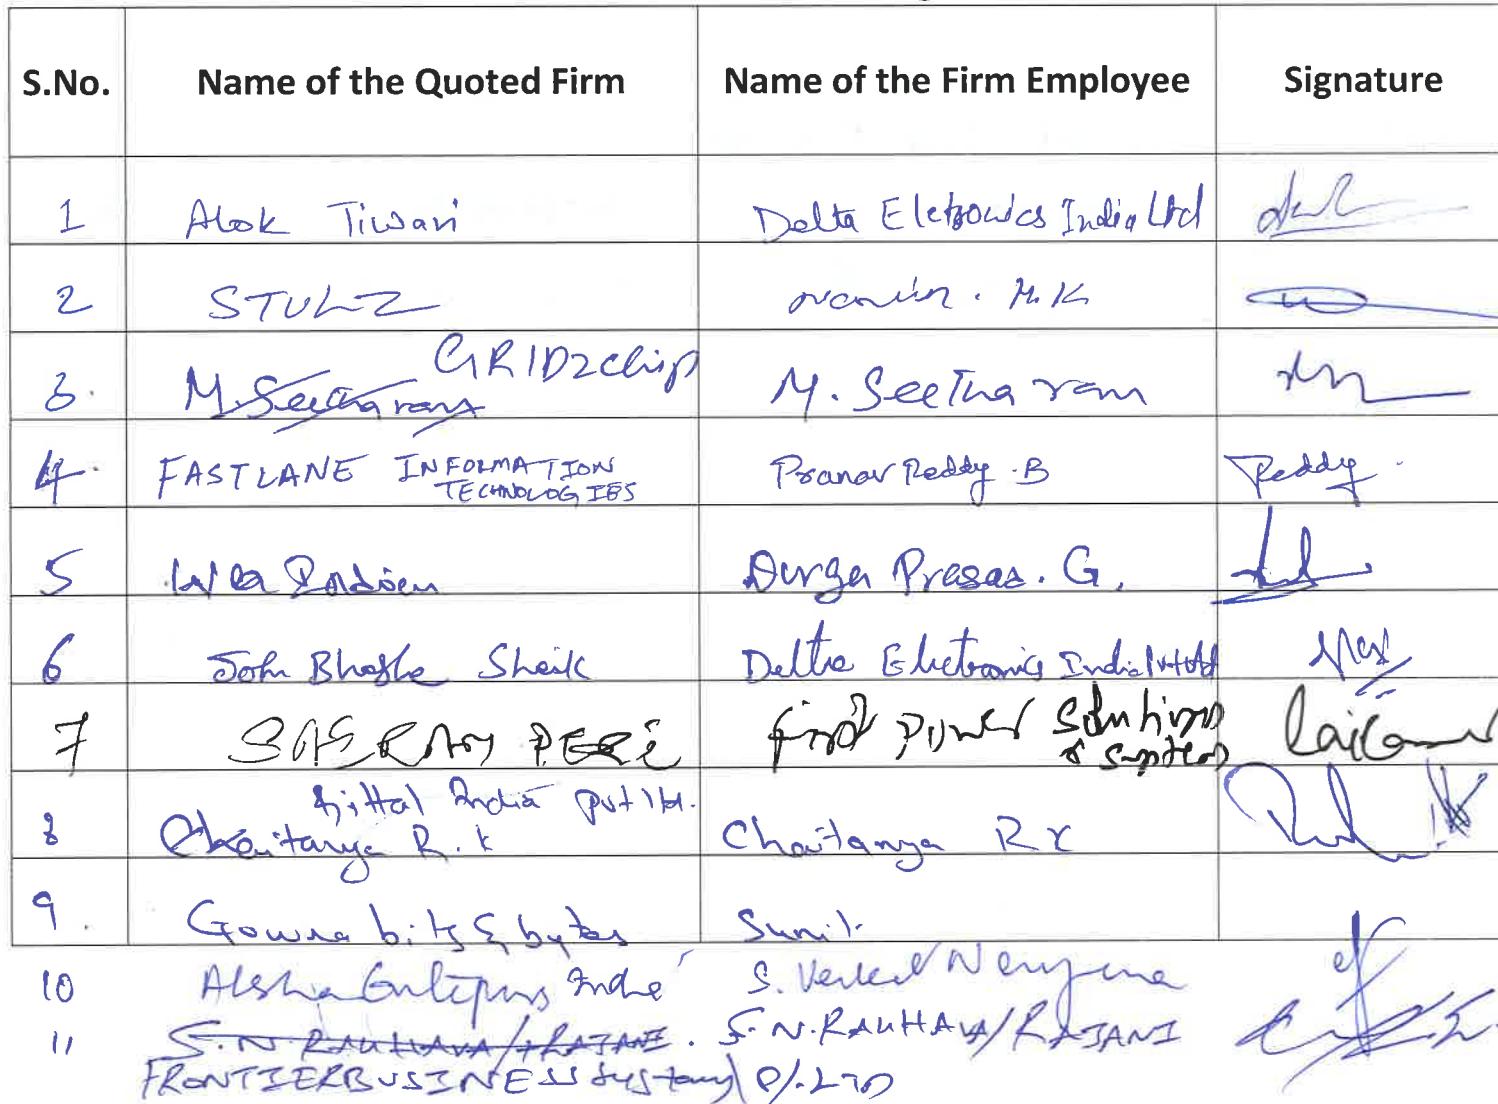 S.No. Name of the Quoted Firm Name of the Firm Employee Signature
1 Alok Tiwari Delta Eletronics India Ltd
2 STULZ M.K
3. M. Seetharam GRID2chip M. Seetharam
4. FASTLANE INFORMATION TECHNOLOGIES Pranav Reddy .B Reddy
5 Durga Prasas. G.
6 John Sheik Delta Eletronics India
7 SAIERAM PERI first Power Solutions & Systems
8 Rittal India pvt ltd. Chaitanya R.k Chaitanya RK
9. Gowra bits & bytes Sunil
10 India S. Venkat
11 S.N RAGHAVA/RAJANI. S.N.RAGHAVA/RAJANI
FRONTIER BUSINESS Systems P/.LTD